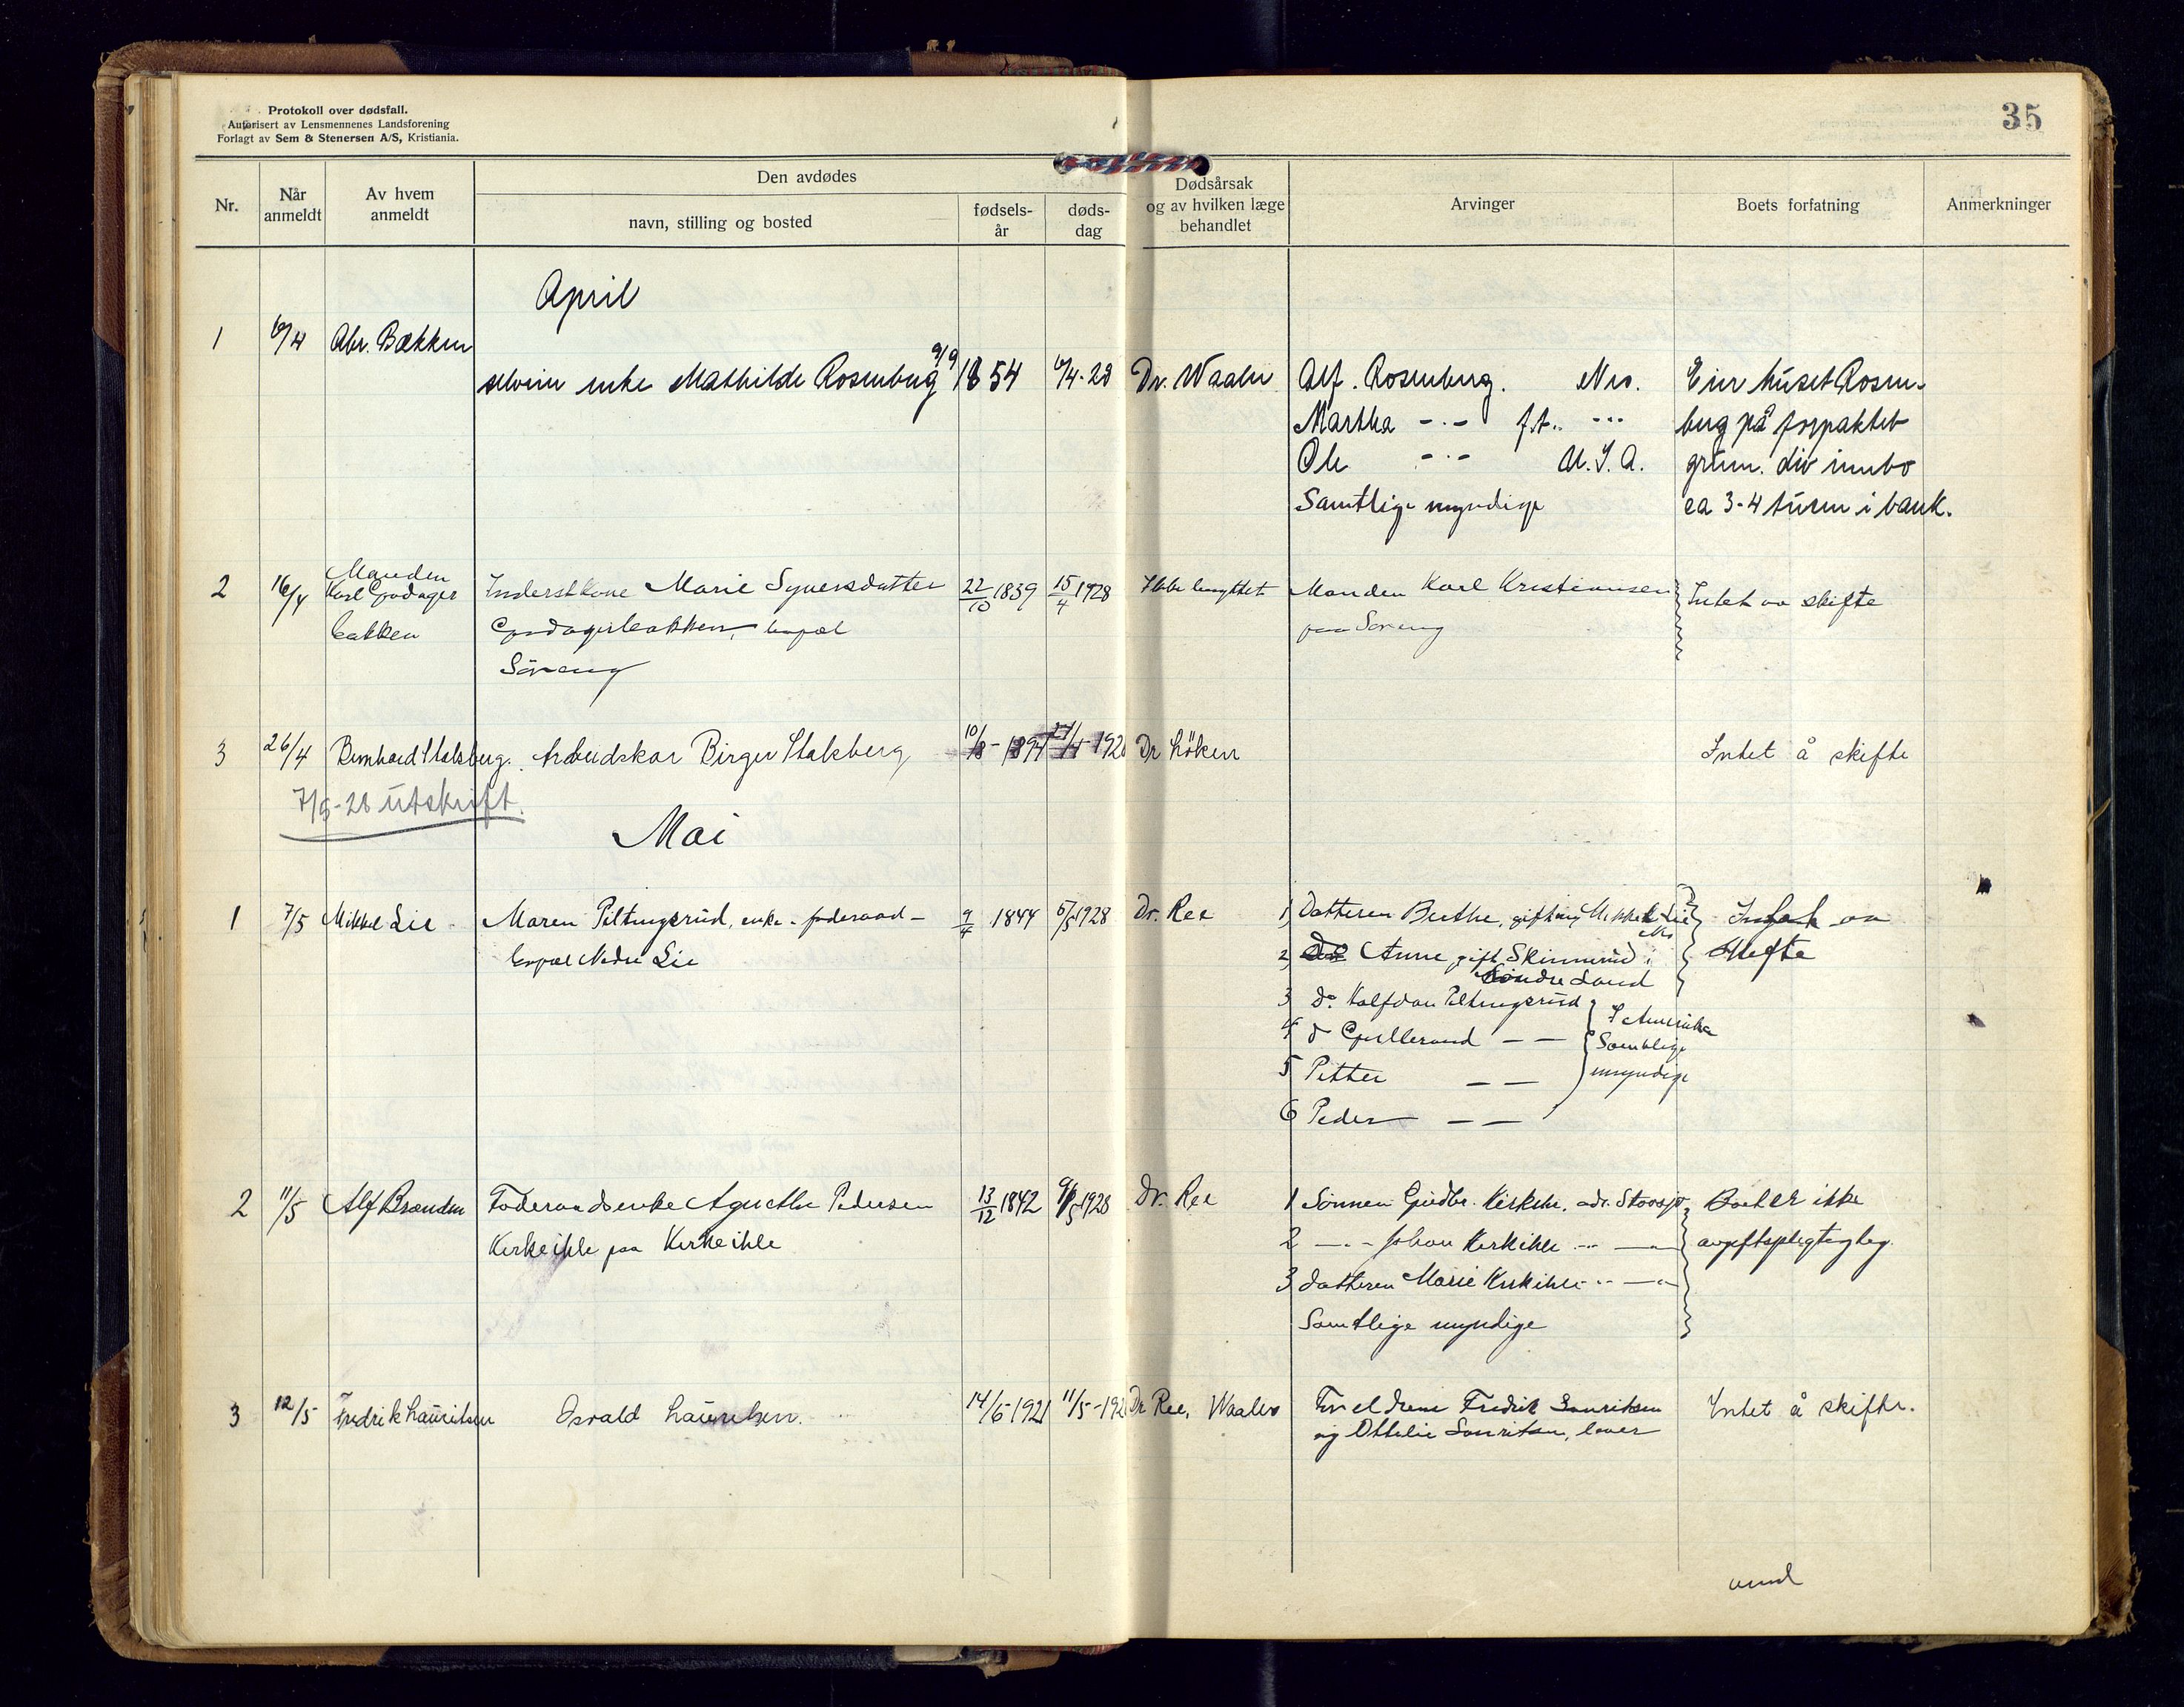 Protokoll over dødsfall.
Autorisert av Lensmennenes Landsforening
Forlagt av Sem & Stenersen A/S, Kristiania.
35
Nr.
Når anmeldt
Av hvem anmeldt
Den avdødes
navn, stilling og bosted
fødsels-år
døds-dag
Dødsårsak og av hvilken læge behandlet
Arvinger
Boets forfatning
Anmerkninger
April
1 10/4 Abr. Bækken
enke Mathilde Rosenberg 9/9 1854 10/4-28 Dr. Waaler Alf. Rosenberg. Nes. Eier huset Rosen-
Martha -.- f.t. -.- berg på forpaktet
Ole -.- U.S.A. grunn. div innbo
Samtlige myndige ca 3-4 tusen i bank.
2 16/4 Manden Karl Gredager bakken Inderstkone Marie Syversdatter 22/10 1839 15/4 1928 Ikke benyttet Manden Karl Kristiansen Intet aa skifte
bopæl paa Soreng
Søreng
3 26/4 Bernhard Stalsberg. Arbeidskar Birger Stalsberg 10/8-1894 1928 Dr Löken Intet å skifte
7/5-28 utskrift.
Mai
1 7/5 Mikkel Lie Maren Piltingsrud, enke - foderaad - 9/4 1844 5/5 1928 Dr. Ree 1 Datteren Berthe, gift m/ Mikkel Lie Intet aa
bopæl Nedre Lie Nes skifte
2 do Anne gift Skinnerud i
Søndre Land
3 do. Halfdan Piltingsrud I Amerika
4 d Gulbrand - - Samtlige
5 Petter - - myndige
6 Peder - -
2 11/5 Alf Brænden Foderaadsenke Agnethe Pedersen 13/12 1842 9/5 1928 Dr. Ree 1 Sønnen Gudbr. Kirkihle, adr. Stavsjø Boet er ikke
Kirkeihle paa Kirkeihle 2 -.- Johan Kirkihle -.- avgiftspligtig
3 datteren Marie Kirkihle -.-
Samtlige myndige
3 12/5 Fredrik Lauritsen Osvald Lauritsen. 14/6-1921 11/5-1928 Dr Ree, Waaler Foreldrene Fredrik Lauritsen Intet å skifte.
og Ottilie Lauritsen, lever